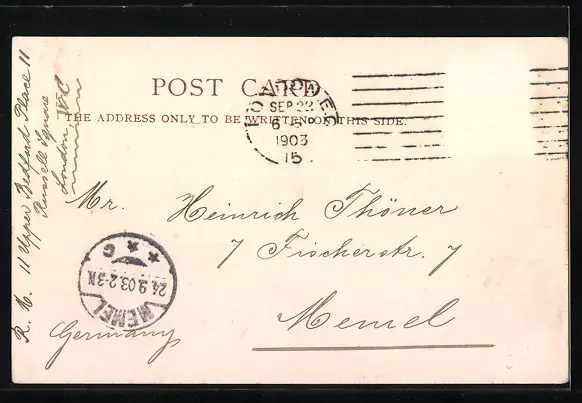 POST CARD
THE ADDRESS ONLY TO BE WRITTEN ON THIS SIDE.
LONDON W.C
SEP 22
6 15 P
1903
15
R. W. 11 Upper Bedford Place 11
Russell Square
London WC
Mr. Heinrich Thöner
7 Fischerstr. 7
Memel
Germany
MEMEL
24.9.03.2-3N
* * C